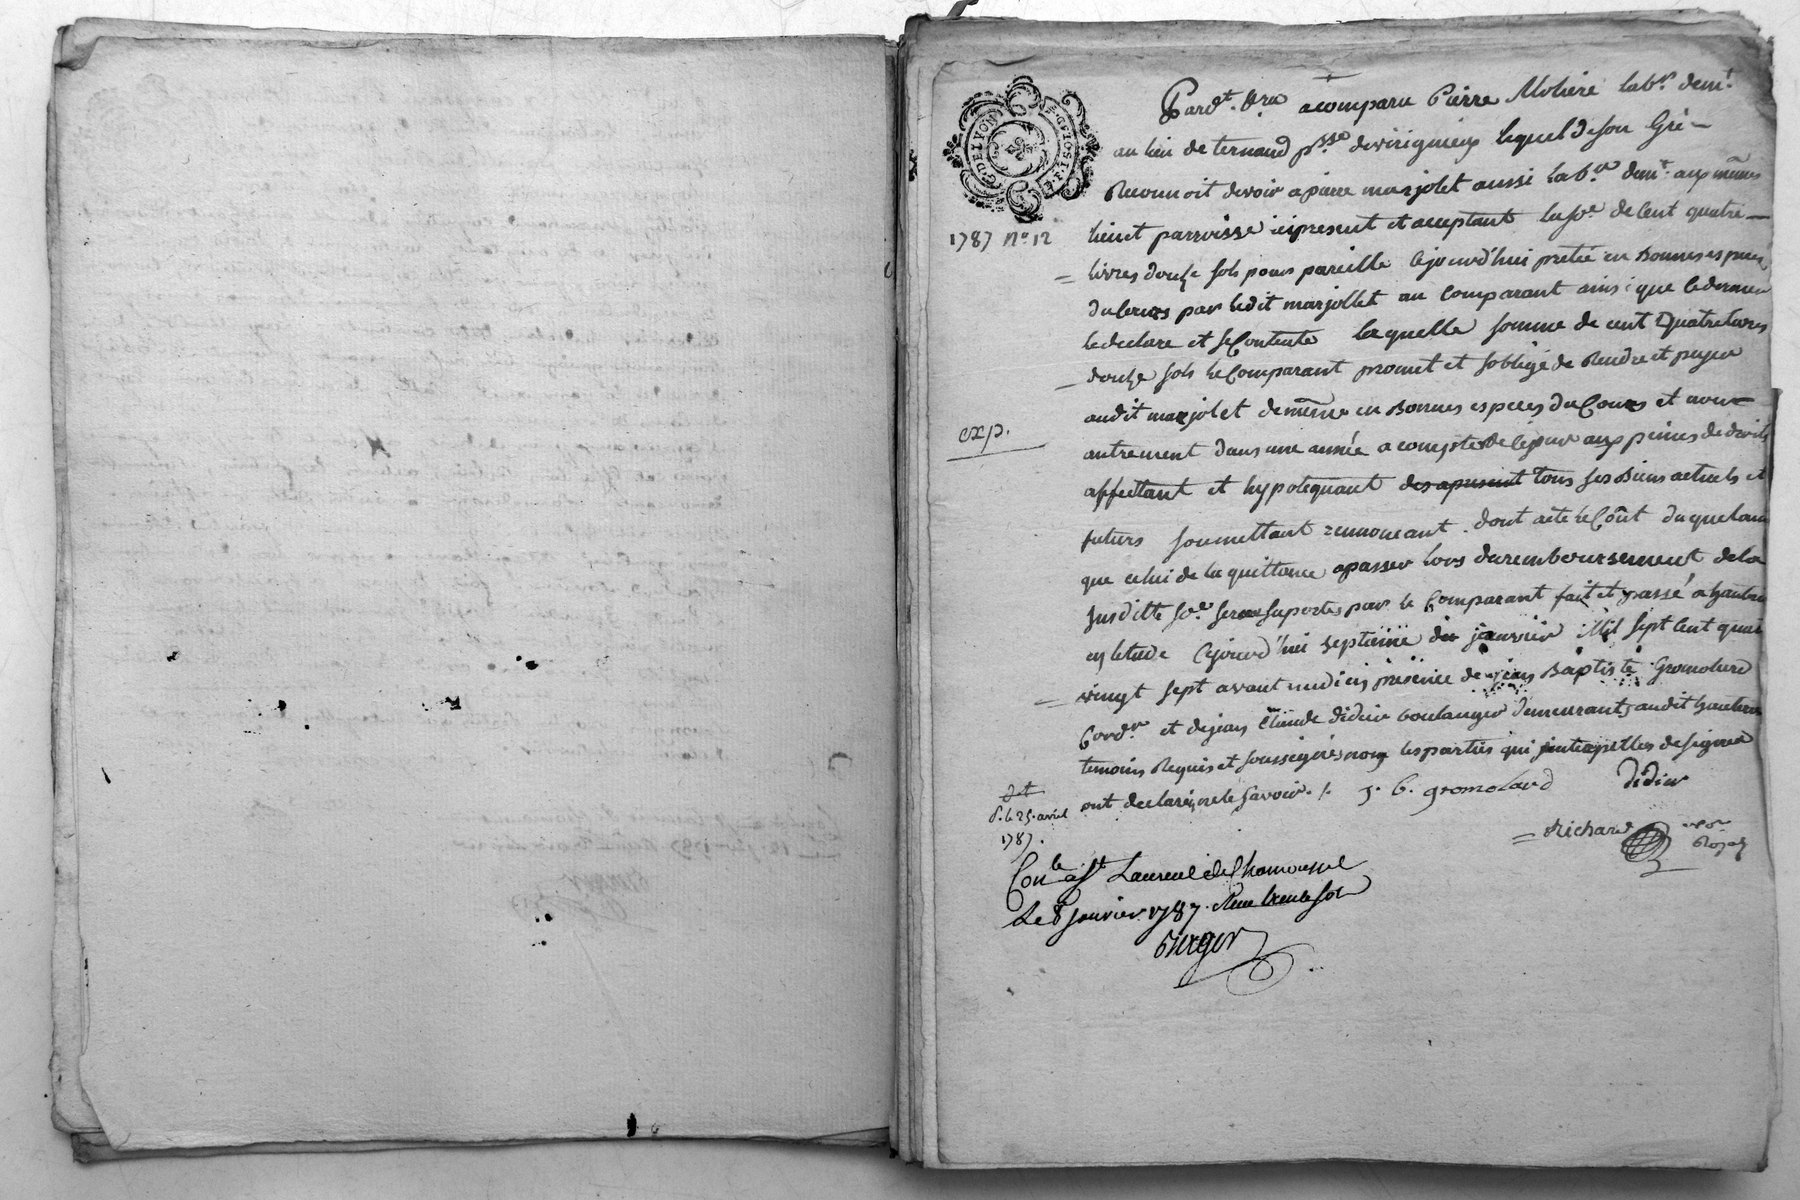 G. DE LYON
2 SOLS
1787 No. 12
Pardt. Nre a comparu Pierre Moliere labr. demt.
au lieu de ternand psse. de virigneux lequel de son Gré
Reconnoit devoir a piere marjolet aussi labr. demt. aux mêmes
lieu et parroisse ici present et acceptant la se. de Cent quatre
livres douze sols pour pareille cejourd'hui pretée en Bonnes espèces
du Cours par ledit marjollet au Comparant ainsi que ledernier
le declare et se Contente laquelle somme de cent Quatre livres
douze sols le Comparant promet et soblige de Rendre et payer
audit marjolet de même en Bonnes especes du Cours et non
autrement dans une année a compter de ce jour aux peines de droit
affectant et hypotequant tous ses Biens actuels et
futurs soumettant renonceant. dont acte le Coût duquel ainsi
que celui de la quittance a passer lors du remboursement de la
susditte se. seront suportés par le Comparant fait et passé a hauteri
en letude Cejourd'hui septieme de janvier Mil sept Cent quatre
vingt sept avant midi en présence de jean Baptiste Gromolard
Cordr. et de jean Claude didier boulanger demeurants audit hauteri
temoins Requis et soussignés non les parties qui interpellés de signer
ont declaré ne le savoir. /. J. B. gromolard Didier
exp.
d. le 25. avril
1787.
Richard nore Royal
Conle. a St Laurent de Chamousset
Le 8 Janvier 1787. Reçu trente sols
Berger